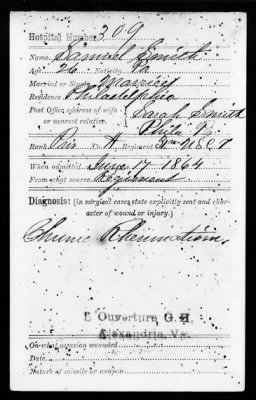 Hospital Number 3209
Name, Samuel Smith
Age, 26 Nativity, Pa
Married or Single, Married
Residence, Philadelphia
Post Office address of wife
or nearest relative. Sarah Smith
Phila Pa
Rank, Priv Co. H Regiment, U.S.C.T
When admitted, June 17 1864
From what source, Regiment
Diagnosis: (in surgical cases state explicitly seat and char-
acter of wound or injury.)
Chronic Rheumatism,
Ouverture G. H.
Alexandria, Va.
On what occasion wounded
Date,
Nature of missile or weapon,